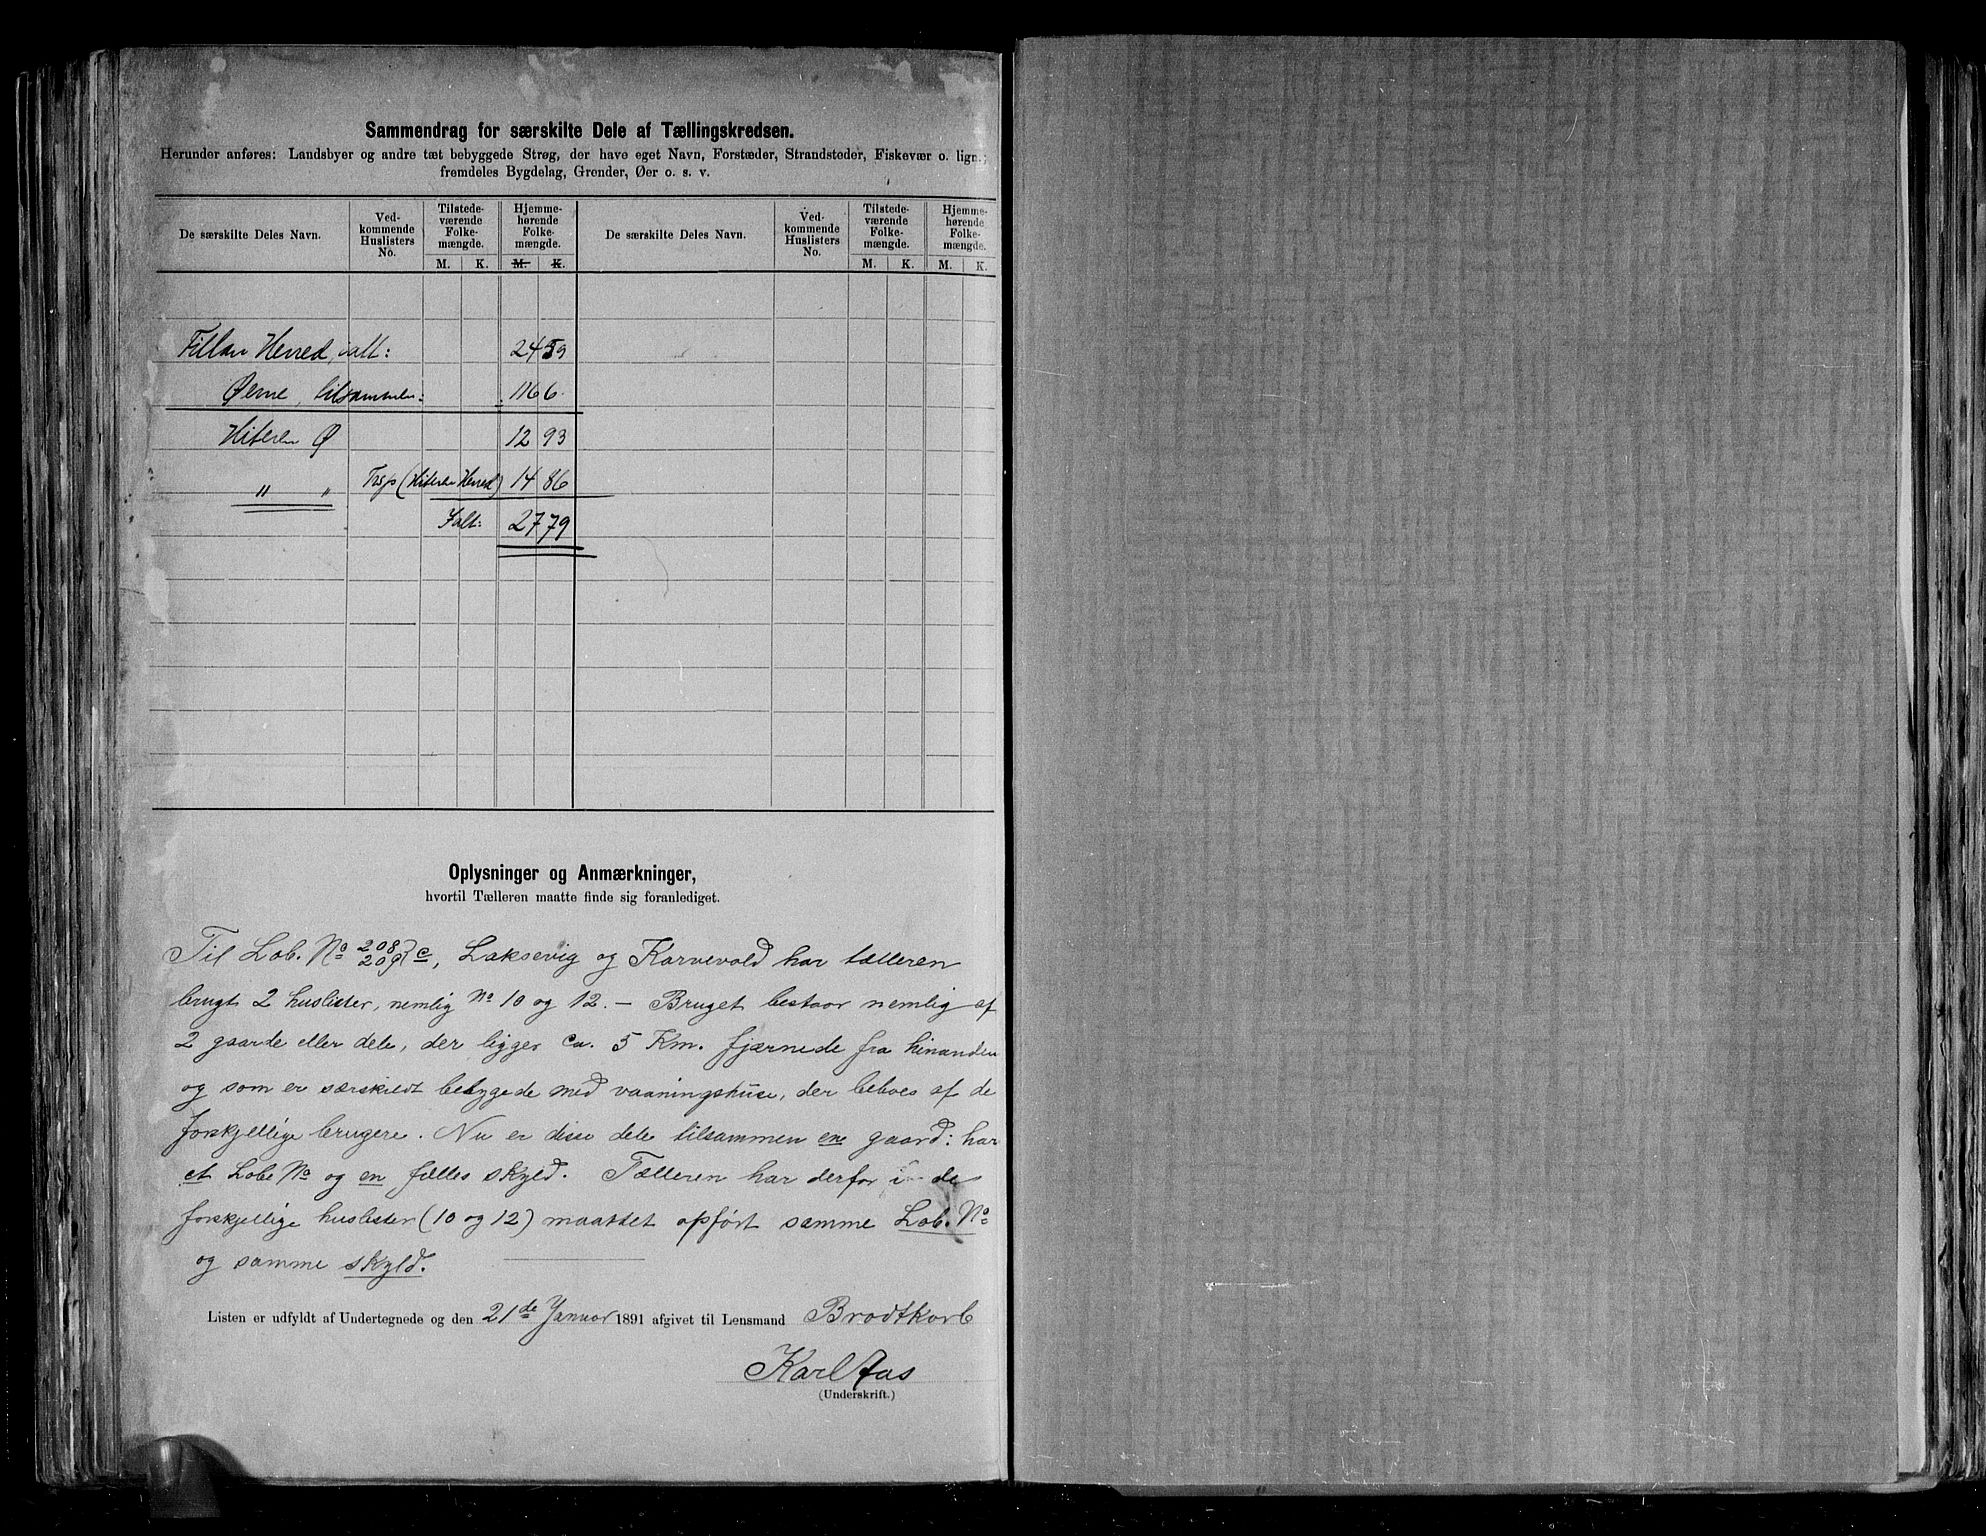 Sammendrag for særskilte Dele af Tællingskredsen.
Herunder anføres: Landsbyer og andre tæt bebyggede Strøg, der have eget Navn, Forstæder, Strandsteder, Fiskevær o. lign.;
fremdeles Bygdelag, Grender, Øer o. s. v.
De særskilte Deles Navn. Ved-kommende Huslisters No. Tilstede-værende Folke-mængde. Hjemme-hørende Folke-mængde. De særskilte Deles Navn. Ved-kommende Huslisters No. Tilstede-værende Folke-mængde. Hjemme-hørende Folke-mængde.
M. K. M. K. M. K. M. K.
Fillan Herred, ialt: 2459
Øerne, tilsammen: 1166
Hiteren Ø 1293
" " (Hiteren Herred) 1486
Ialt: 2779
Oplysninger og Anmærkninger,
hvortil Tælleren maatte finde sig foranlediget.
Til Lob. No 208 209 c, Laksevig og Karvevold har tælleren
brugt 2 huslister, nemlig No 10 og 12. – Bruget bestaar nemlig af
2 gaarde eller dele, der ligger ca. 5 Km. fjærnede fra hinanden
og som er særskildt bebygede med vaaningshuse, der beboes af de
forskjellige brugere. Nu er disse dele tilsammen en gaard: har
et Lobe No og en fælles skyld. Tælleren har derfor i de
forskjellige huslister (10 og 12) maattet opført samme Lob. No
og samme skyld.
Listen er udfyldt af Undertegnede og den 21de Januar 1891 afgivet til Lensmand Brodtkorb
Karl Aas
(Underskrift.)